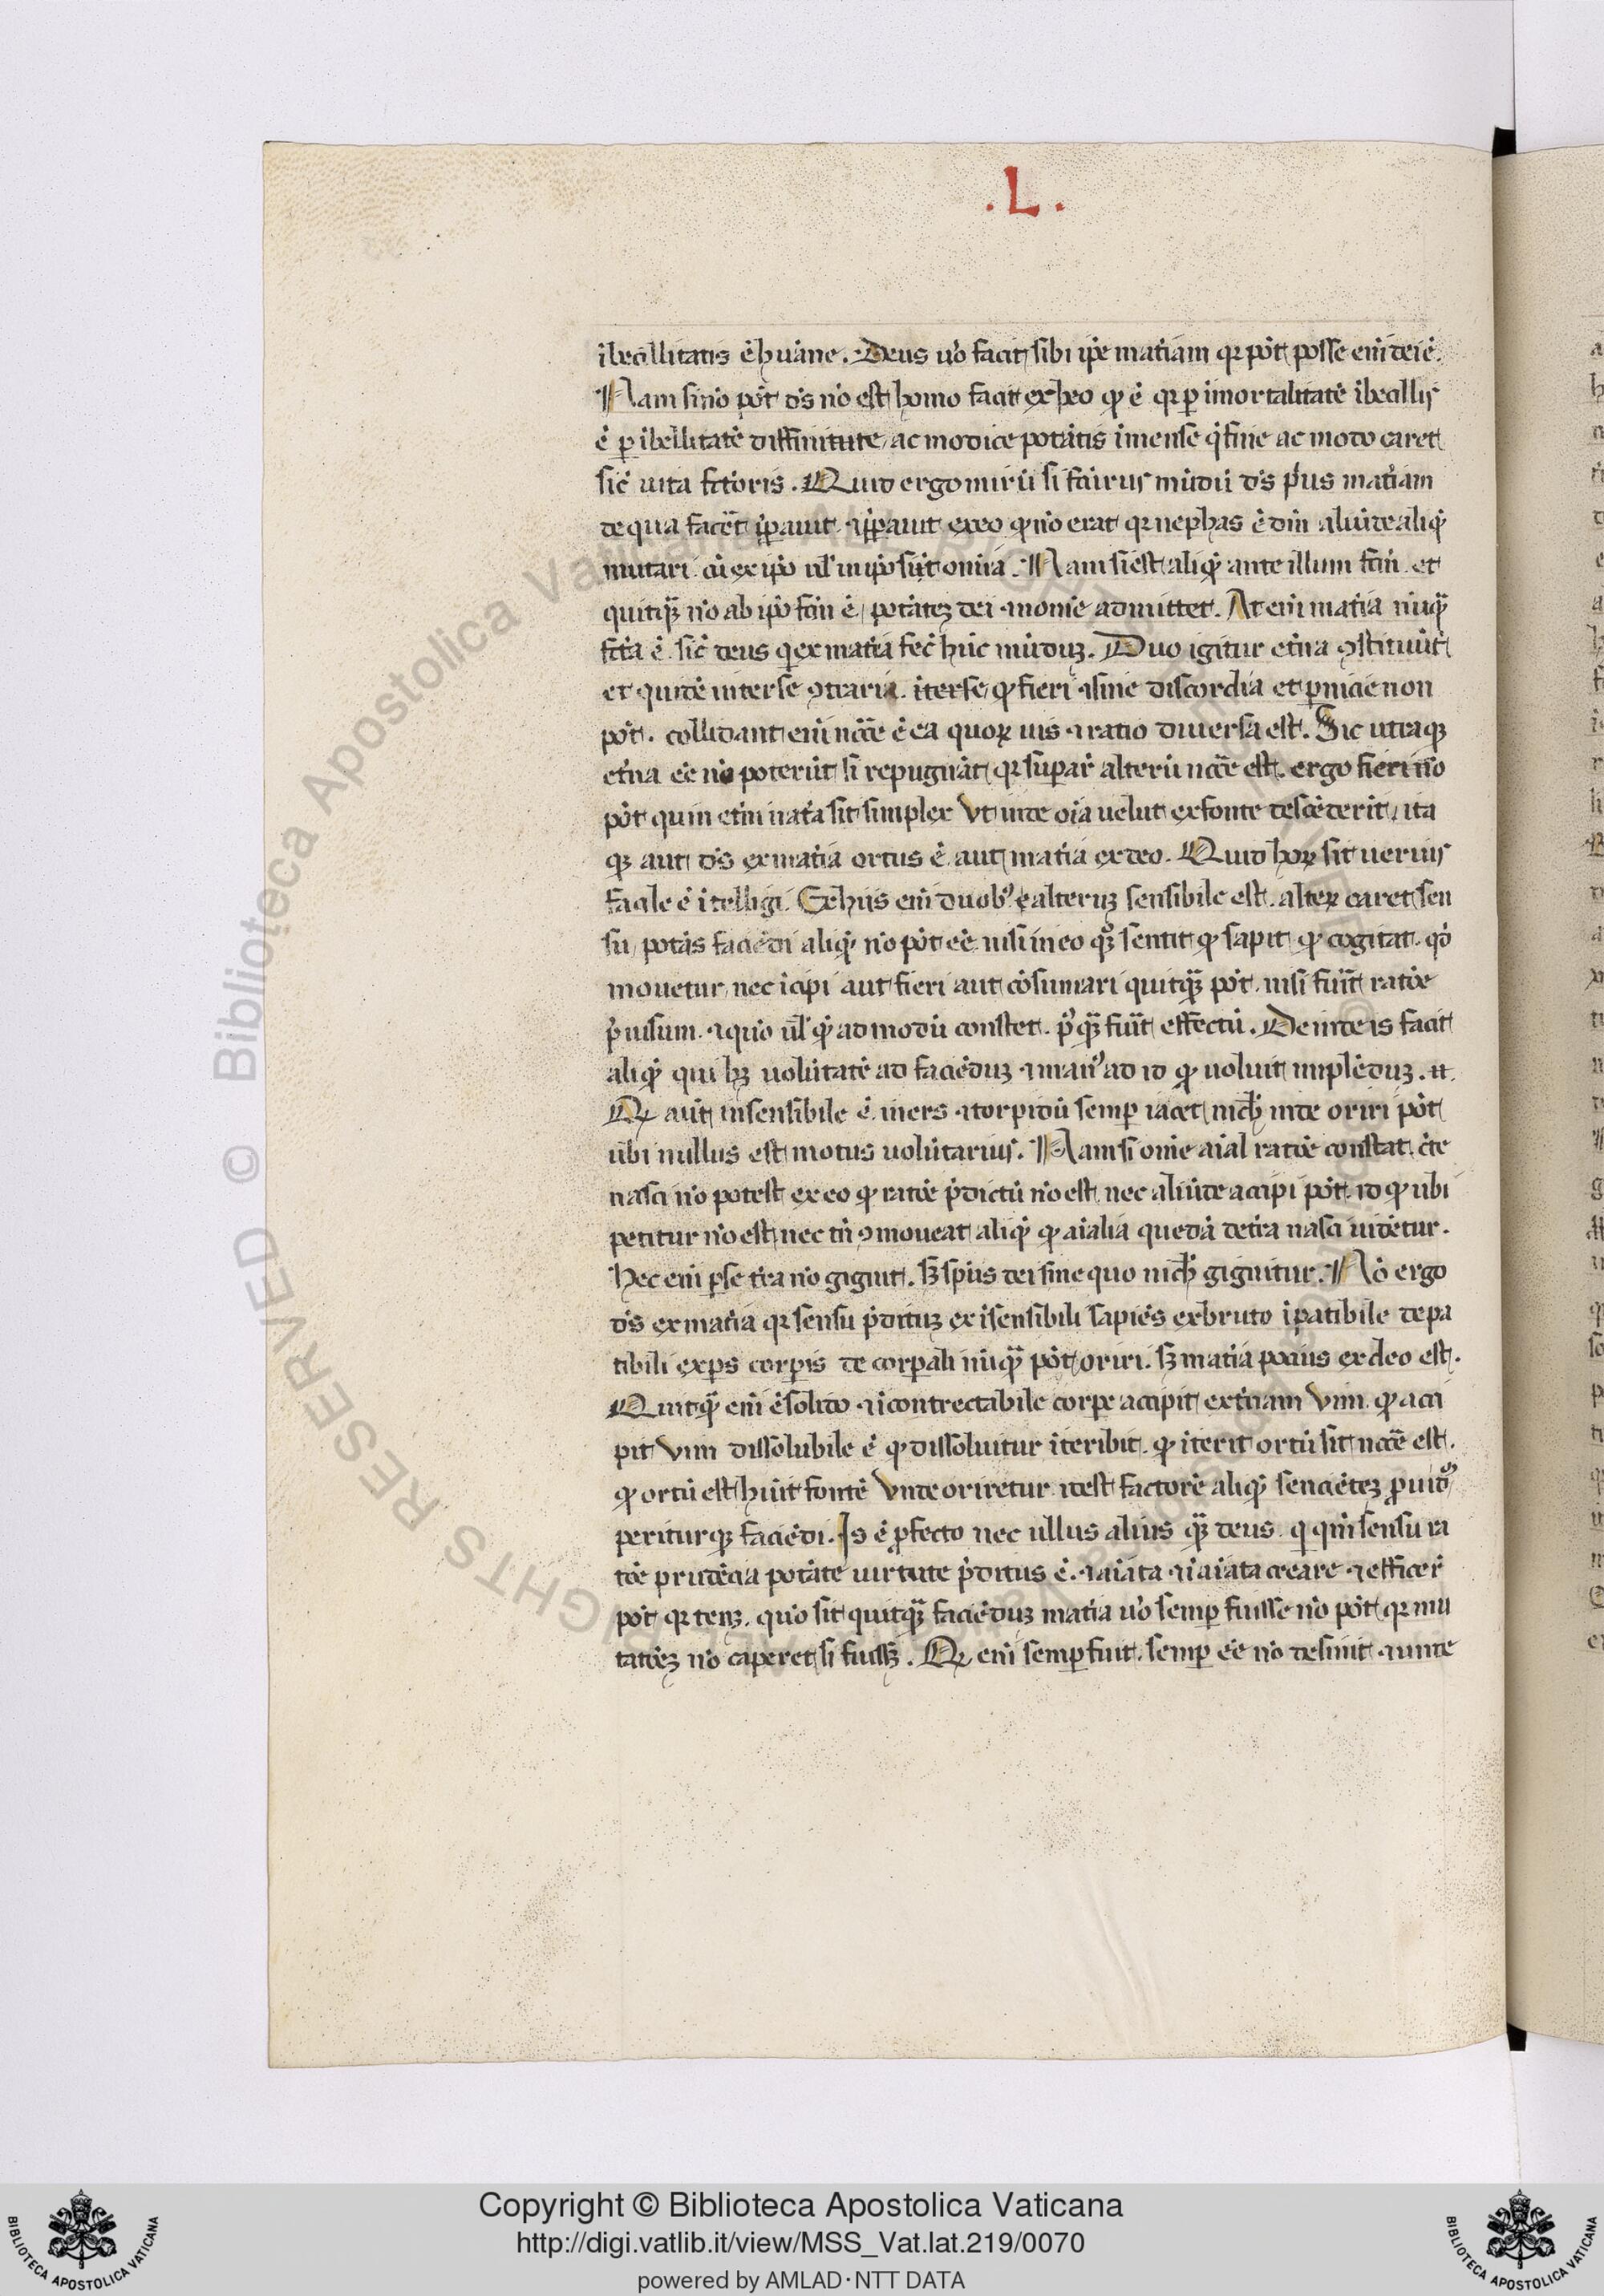 .L.
ibecillitatis ē huāne. Deus u͛o facit sibi ip̄e mat͛iam qꝛ pōt posse eni̅ dei ē.
Nam si nō pōt ds̄ nō est homo facit ex heo qꝙ ē qꝛ ꝑ imortalitatē ibecillis
ē ꝑ ibellitatē diffinitute ac modice potātis imense q̇ fine ac modo caret
sic̄ uita fc̄toris. Quid ergo mirū si fc̄turus mūdū ds̄ p͛us mat͛iam
de qua facēt p̄parauit ⁊ p̄parauit ex eo ꝙ nō erat qꝛ nephas ē dm̄ aliūde aliq̇
mutari cū ex ip̄o ul̓ in ip̄o sūt om̄ia. Nam si est aliq̇ ante illum fc̄m et
quitq̄ꝫ nō ab ip̄o fc̄m ē potātez dei ⁊ nomē admittet. At eni̅ mat͛ia nūq̄ꝫ
fc̄ta ē sic̄ deus q̇ ex mat͛ia fec̄ hūc mūduꝫ. Duo igitur et͛na ꝯstituūt
et quidē inter se ꝯtraria iter se ꝙ fieri ⁊ sine discordia et ꝑnicie non
pōt. collidant eni̅ nc̄cē ē ea quoꝝ uis ⁊ ratio diuersa est. Sic utraqꝫ
et͛na eē nō poterūt si repugnāt qꝛ suꝑar̄ alterū nc̄cē est. ergo fieri nō
pōt quin et͛ni nat͛a sit simplex vt inde oīa uelut ex fonte descēderīt ita
qꝫ aut ds̄ ex mat͛ia ortus ē aut mat͛ia ex deo. Quid hoꝝ sit uerius
facile ē itelligi. Ex hiis eni̅ duobꝰ alteruꝫ sensibile est. alteꝝ caret sen
su potās faciēdi aliq̇ nō pōt eē nisi in eo qꝫ sentit ꝙ sapit ꝙ cogitat qō
mouetur nec īcipi aut fieri aut cōsumari quitq̄ꝫ pōt nisi fuīt ratōe
p͛uisum ⁊ quō ul̓ q̇ ad modū constet. p͛ꝰq̄ꝫ fuīt effectū. Deinde is facit
aliq̇ qui hꝫ uolūtatē ad faciēduꝫ ⁊ manꝰ ad id ꝙ uoluit implēduꝫ.
Qꝙ aūt insensibile ē iners ⁊ torpidū semꝑ iacet nich̓ inde oriri pōt
ubi nullus est motus uolūtarius. Nam si om̄e aīal ratōe constat c͛te
nasci nō potest ex eo ꝙ ratōe p͛dictū nō est nec aliūde accipi pōt id ꝙ ubi
petitur nō est nec tn̄ ꝯmoueat aliq̇ ꝙ aīalia quedā de t͛ra nasci uidētur.
Hec eni̅ ꝑse t͛ra nō gignit. sꝫ sp̄us dei sine quo nich̓ gignitur. Nō ergo
ds̄ ex mat͛ia qꝛ sensu p͛dituꝫ ex isensibili sapiēs ex bruto īpatibile de pa
tibili exꝑs corꝑis de corꝑali nūq̄ꝫ pōt oriri. sꝫ mat͛ia pocius ex deo est.
Quitq̄ꝫ eni̅ ē solido ⁊ icontrectabile corꝑe accipit ext͛nam vim ꝙ acci
pit vim dissolubile ē ꝙ dissoluitur iteribit. ꝙ iterit ortū sit nc̄cē est.
ꝙ ortū est hūit fontē vnde oriretur idest factorē aliq̇ senciētez ꝓuidꝫ
periturqꝫ faciēdi. Is ē ꝓfecto nec ullus alius q̄ꝫ deus q qm̄ sensu ra
tōe prudēcia potāte uirtute p͛ditus ē. ⁊ aīata ⁊ iaīata creare ⁊ efficer̄
pōt qꝛ tenꝫ quō sit quitq̄ꝫ faciēduꝫ mat͛ia u͛o semꝑ fuisse nō pōt qꝛ mu
tatōeꝫ nō caperet si fuissꝫ. Qꝙ eni̅ semꝑ fuit. semꝑ eē nō desinit ⁊ unde
© Biblioteca Apostolica Vaticana
ALL RIGHTS RESERVED
Copyright © Biblioteca Apostolica Vaticana
http://digi.vatlib.it/view/MSS_Vat.lat.219/0070
powered by AMLAD·NTT DATA
BIBLIOTECA APOSTOLICA VATICANA
BIBLIOTECA APOSTOLICA VATICANA